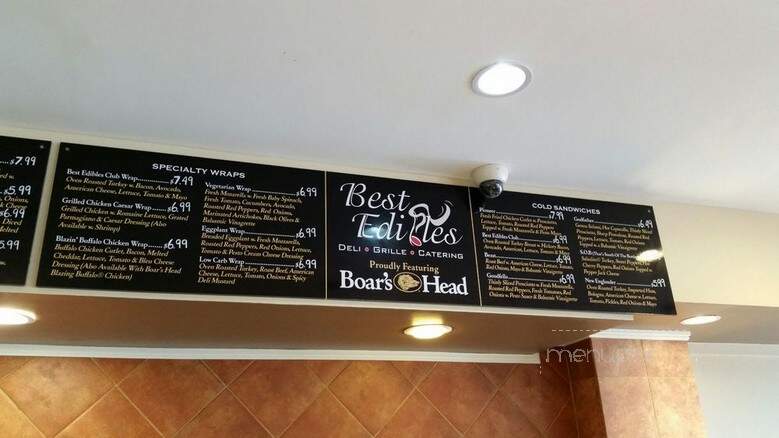 $7.99
$5.99
$6.99
5.99
SPECIALTY WRAPS
Best Edibles Club Wrap $7.49
Oven Roasted Turkey w. Bacon, Avocado,
American Cheese, Lettuce, Tomato & Mayo
Grilled Chicken Caesar Wrap $6.99
Grilled Chicken w. Romaine Lettuce, Grated
Parmagiana & Caesar Dressing (Also
Available w. Shrimp)
Blazin' Buffalo Chicken Wrap $6.99
Buffalo Chicken Cutlet, Bacon, Melted
Cheddar, Lettuce, Tomato & Bleu Cheese
Dressing (Also Available With Boar's Head
Blazing Buffalo® Chicken)
Vegetarian Wrap $6.99
Fresh Mozzarella w. Fresh Baby Spinach,
Fresh Tomato, Cucumbers, Avocado,
Roasted Red Peppers, Red Onions,
Marinated Artichokes, Black Olives &
Balsamic Vinaigrette
Eggplant Wrap $6.99
Breaded Eggplant w. Fresh Mozzarella,
Roasted Red Peppers, Red Onions, Lettuce,
Tomato & Pesto Cream Cheese Dressing
Low Carb Wrap $6.99
Oven Roasted Turkey, Roast Beef, American
Cheese, Lettuce, Tomato, Onions & Spicy
Deli Mustard
Best
Edibles
DELI • GRILLE • CATERING
Proudly Featuring
Boar's Head
COLD SANDWICHES
$7.99
Fresh Fried Chicken Cutlet w. Prosciutto,
Lettuce, Tomato, Roasted Red Peppers,
Topped w. Fresh Mozzarella &
Best Edibles Club $6.99
Oven Roasted Turkey Breast w. Bacon,
Avocado, American, Lettuce, Tomato &
Beast $6.99
Roast Beef w. American Cheese, Lettuce, Tomato,
Red Onion, Mayo & Balsamic Vinaigrette
Goodfella $6.99
Thinly Sliced Prosciutto w. Fresh Mozzarella,
Roasted Red Peppers, Fresh Tomatoes, Red
Onion w. Pesto Sauce & Balsamic Vinaigrette
Godfather $6.99
Genoa Salami, Hot Capicolla, Thinly Sliced
Prosciutto, Sharp Provolone, Roasted Red
Peppers, Lettuce, Tomato, Red Onion
Topped w. Balsamic Vinaigrette
S.O.B $6.99
Cherry Peppers, Red Onion Topped w.
Pepper Jack Cheese
New Englander $5.99
Oven Roasted Turkey, Imported Ham,
Bologna, American Cheese w. Lettuce,
Tomato, Pickles, Red Onion & Mayo
menu